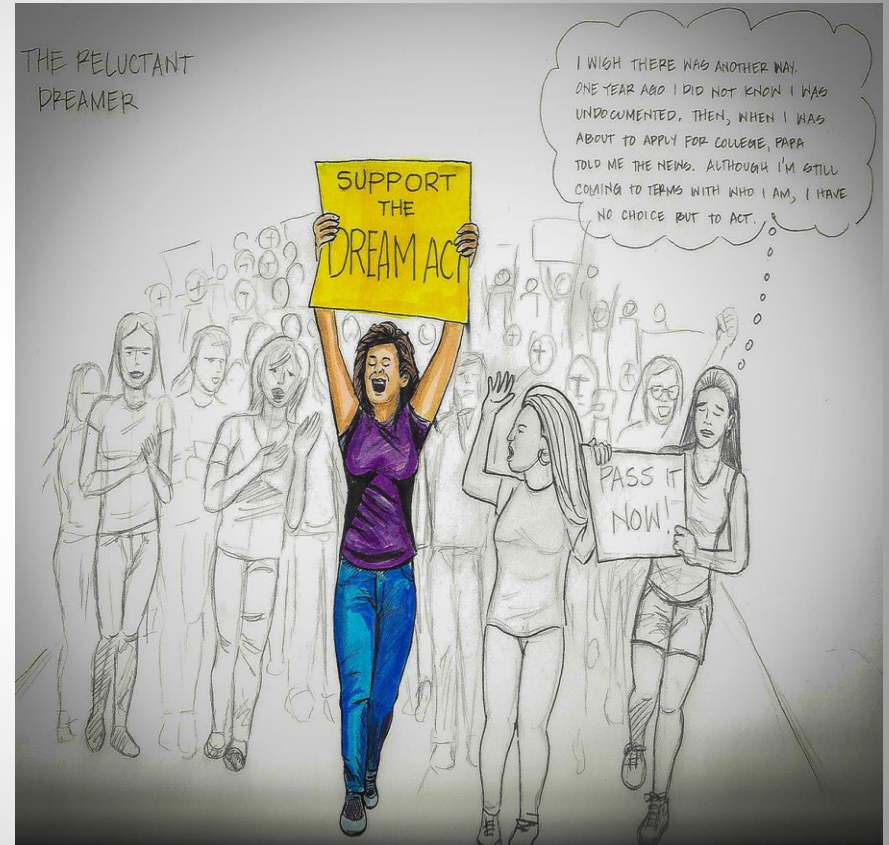 THE RELUCTANT
DREAMER
I WISH THERE WAS ANOTHER WAY.
ONE YEAR AGO I DID NOT KNOW I WAS
UNDOCUMENTED. THEN, WHEN I WAS
ABOUT TO APPLY FOR COLLEGE, PAPA
TOLD ME THE NEWS. ALTHOUGH I'M STILL
COMING TO TERMS WITH WHO I AM, I HAVE
NO CHOICE BUT TO ACT.
SUPPORT
THE
DREAM ACT
PASS IT
NOW!